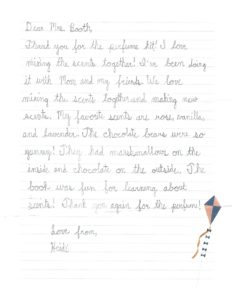 Dear Mrs. Booth,
Thank you for the perfume kit! I love
mixing the scents together! I've been doing
it with Mom and my friends. We love
mixing the scents together and making new
scents. My favorite scents are rose, vanilla
and lavender. The chocolate bears were so
yummy! They had marshmallow on the
inside and chocolate on the outside. The
book was fun for learning about
scents! Thank you again for the perfume!
Love from,
Heidi